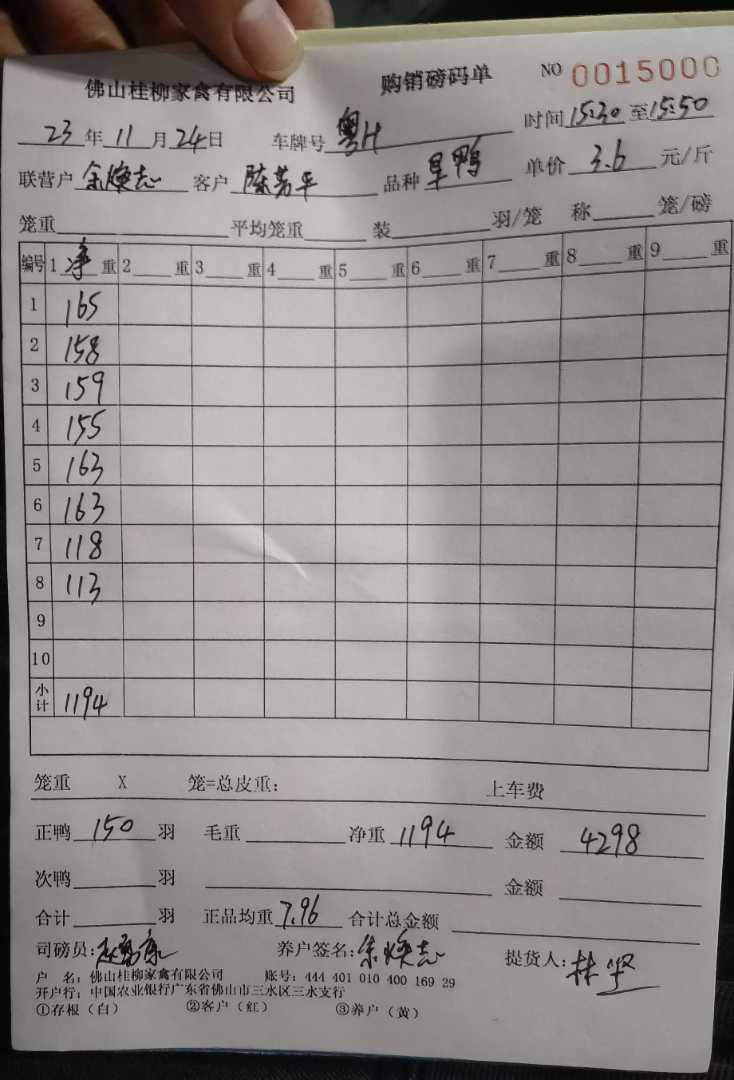 佛山桂柳家禽有限公司 购销磅码单 NO 0015000
23年11月24日 车牌号 粤H 时间15:30至15:50
联营户 余焕志 客户 陈芳平 品种 旱鸭 单价 3.6 元/斤
笼重 平均笼重 装 羽/笼 称 笼/磅
编号 1 净 重 2 重 3 重 4 重 5 重 6 重 7 重 8 重 9 重
1 165
2 158
3 159
4 155
5 163
6 163
7 118
8 113
9
10
小计 1194
笼重 X 笼=总皮重: 上车费
正鸭 150 羽 毛重 净重 1194 金额 4298
次鸭 羽 金额
合计 羽 正品均重 7.96 合计总金额
司磅员: 养户签名: 余焕志 提货人: 林坚
户 名: 佛山桂柳家禽有限公司 账号: 444 401 010 400 169 29
开户行: 中国农业银行广东省佛山市三水区三水支行
①存根(白) ②客户(红) ③养户(黄)